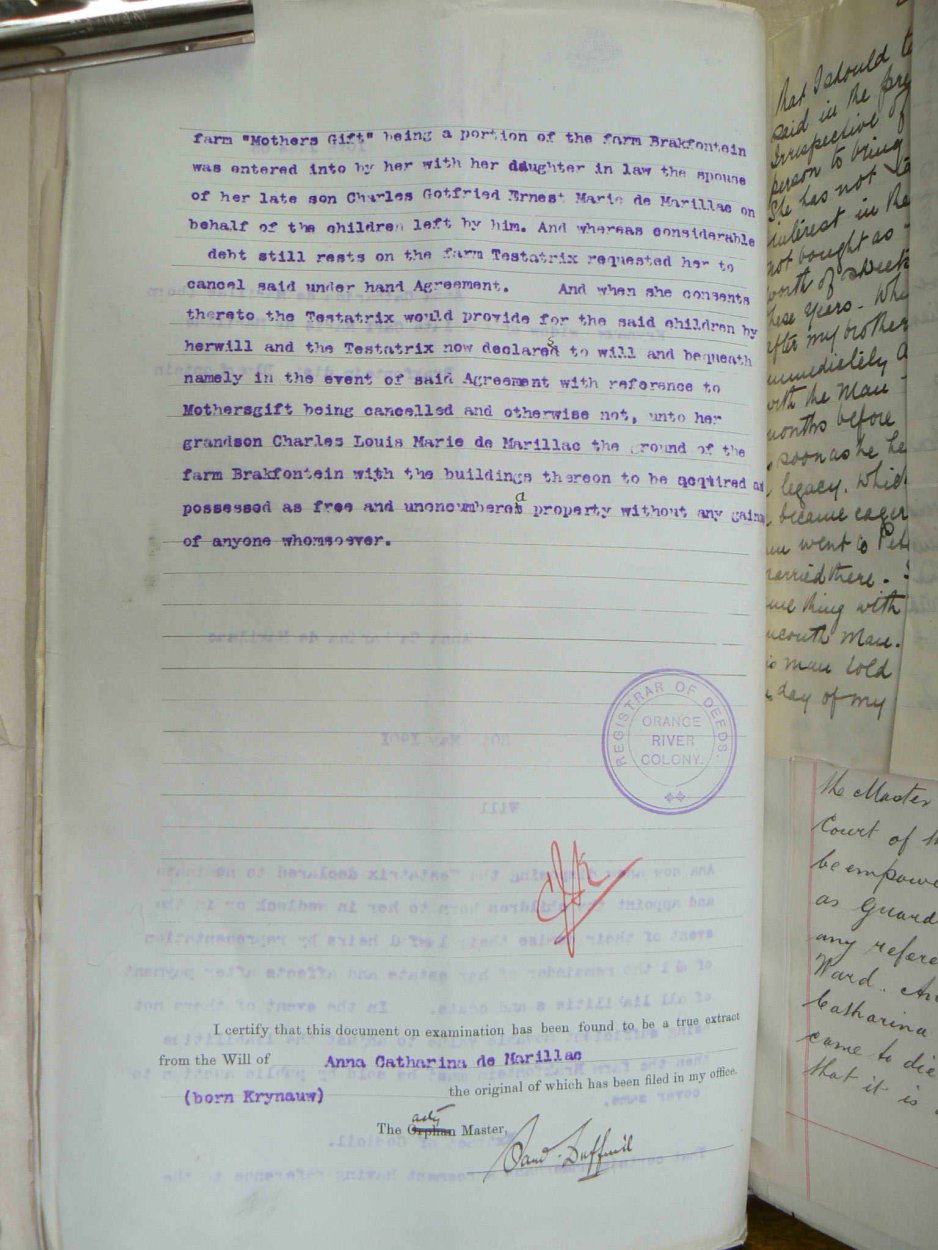 farm "Mothers Gift" being a portion of the farm Brakfontein
was entered into by her with her daughter in law the spouse
of her late son Charles Gotfried Ernest Marie de Marillac on
behalf of the children left by him. And whereas considerable
debt still rests on the farm Testatrix requested her to
cancel said under hand Agreement. And when she consents
thereto the Testatrix would provide for the said children by
herwill and the Testatrix now declares to will and bequeath
namely in the event of said Agreement with reference to
Mothersgift being cancelled and otherwise not, unto her
grandson Charles Louis Marie de Marillac the ground of the
farm Brakfontein with the buildings thereon to be acquired an
possessed as free and unoncumbered property without any gain
of anyone whomsoever.
REGISTRAR OF DEEDS.
ORANGE
RIVER
COLONY.
I certify that this document on examination has been found to be a true extract
from the Will of Anna Catharina de Marillac
(born Krynauw) the original of which has been filed in my office.
actg
The Orphan Master,
that I should t
said in the pre
Irrespective of
person to bring
She has not
interest in the
not bought as
worth of
these years. Whe
after my brother
immediately
with the man
months before
soon as he he
legacy. Whic
became eager
went to
married there.
thing with
uncouth man.
man told
day of my
the Master
Court of th
be empowe
as Guard
any refere
Ward. An
Catharina
came to die
that it is